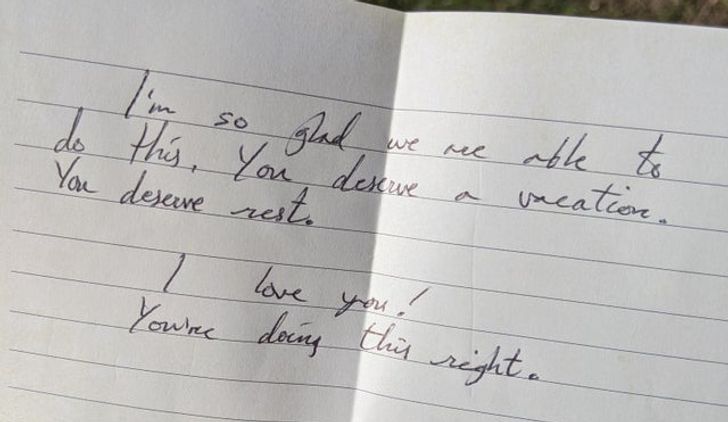 I'm so glad we are able to
do this. You deserve a vacation.
You deserve rest.
I love you!
You're doing this right.